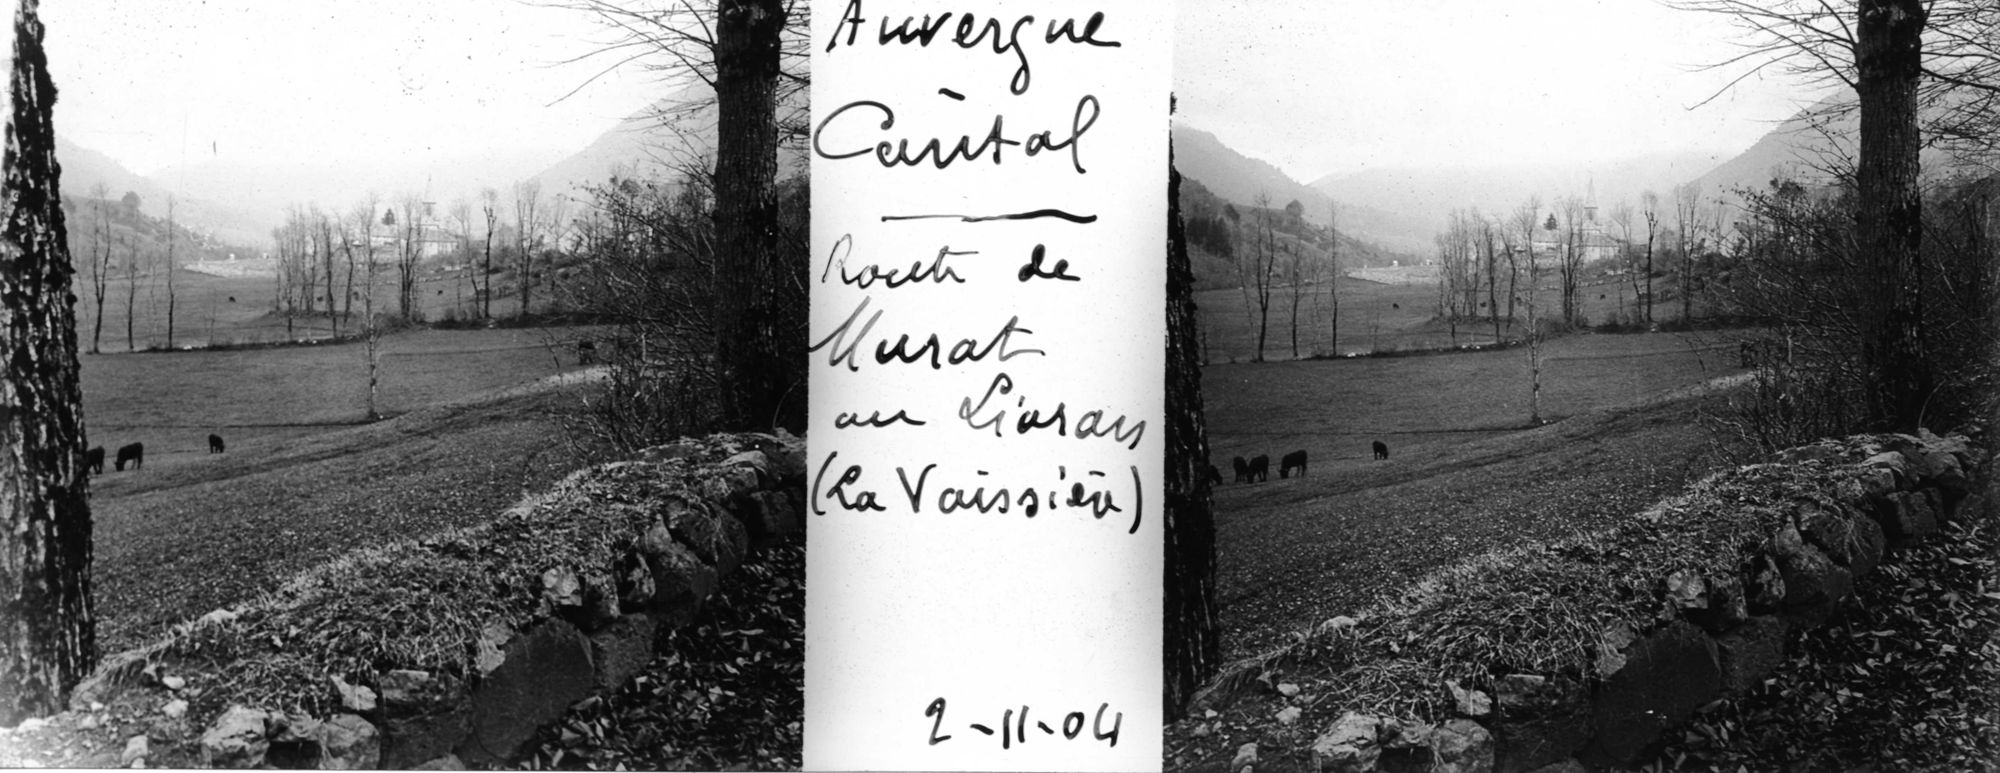 Auvergne
Cantal
Route de
Murat
au Lioran
(La Vaissière)
2-11-04